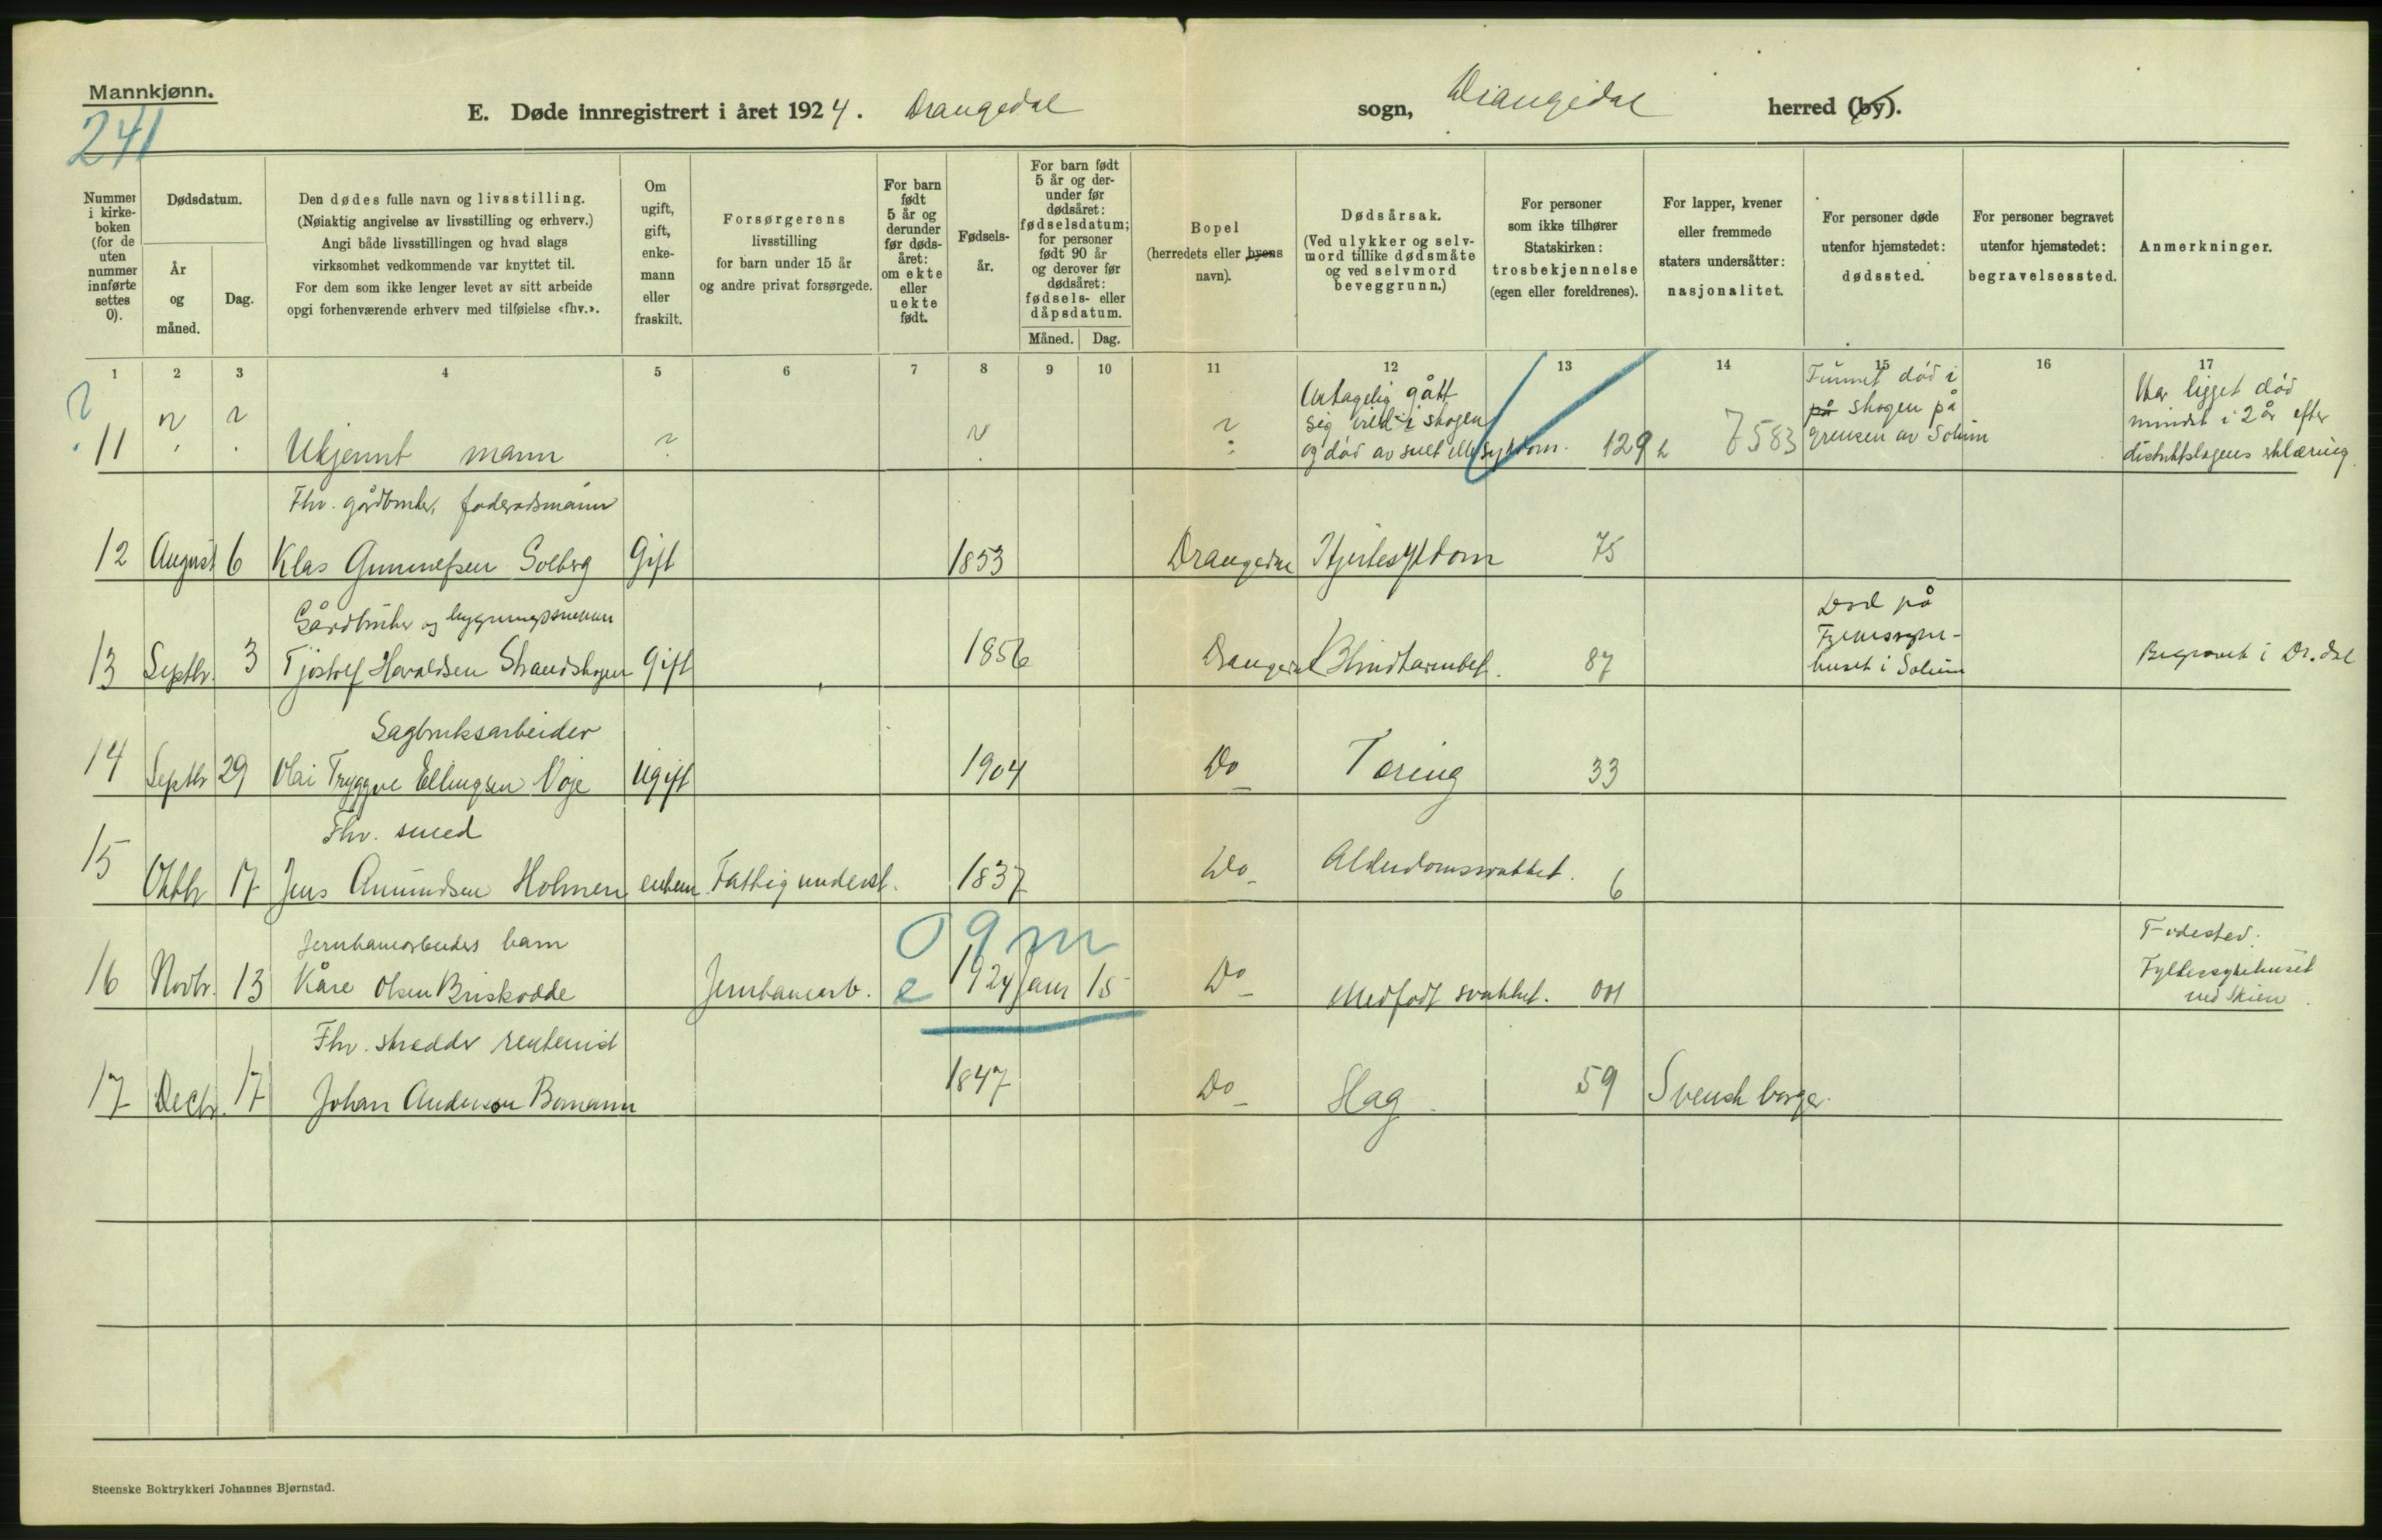 Mannkjønn.
241
E. Døde innregistrert i året 1924. Drangedal sogn, Drangedal herred (by).
Nummer i kirkeboken (for de uten nummer innførte settes 0).
Dødsdatum.
År og måned.
Dag.
Den dødes fulle navn og livsstilling.
(Nøiaktig angivelse av livsstilling og erhverv.)
Angi både livsstillingen og hvad slags
virksomhet vedkommende var knyttet til.
For dem som ikke lenger levet av sitt arbeide
opgi forhenværende erhverv med tilføielse «fhv.».
Om ugift, gift, enkemann eller fraskilt.
Forsørgerens
livsstilling
for barn under 15 år
og andre privat forsørgede.
For barn født 5 år og derunder før dødsåret: om ekte eller uekte født.
Fødselsår.
For barn født 5 år og derunder før dødsåret: fødselsdatum; for personer født 90 år og derover før dødsåret: fødsels- eller dåpsdatum.
Måned. Dag.
Bopel
(herredets eller byens navn).
Dødsårsak.
(Ved ulykker og selvmord tillike dødsmåte og ved selvmord beveggrunn.)
For personer
som ikke tilhører
Statskirken:
trosbekjennelse
(egen eller foreldrenes).
For lapper, kvener
eller fremmede
staters undersåtter:
nasjonalitet.
For personer døde
utenfor hjemstedet:
dødssted.
For personer begravet
utenfor hjemstedet:
begravelsessted.
Anmerkninger.
1 2 3 4 5 6 7 8 9 10 11 12 13 14 15 16 17
11 ? ? Ukjennt mann ? ? ? Antagelig gått sig vild i skogen og død av sult eller sykdom. 129 7583 Funnet død i på skogen på grensen av Solum Har ligget død mindst i 2 år efter distriktslægens erklæring
Fhv. gårdbruker, føderådsmann
12 August 6 Klas Gunnulfsen Solberg Gift 1853 Drangedal Hjertesykdom 75
Gårdbruker og bygningssnekker
13 Septbr. 3 Tjøstolf Haraldsen Strandskogen Gift 1856 Drangedal Blindtarmbet. 87 Død på Fylkessykehuset i Solum Begravet i Dr.dal
Sagbruksarbeider
14 Septbr 29 Olai Tryggve Ellingsen Voje Ugift 1904 Do Tæring 33
Fhv. smed
15 Oktbr 17 Jens Amundsen Holmen enkem. Fattigunderst. 1837 Do Alderdomssvakhet. 6
0 9 m
Jernbanearbeiders barn
16 Novbr. 13 Kåre Olsen Briskodde Jernbanearb. e 1924 Jan 15 Do Medfødt svakhet. 001 Fødested: Fylkessykehuset ved Skien.
Fhv. skredder rentenist
17 Decbr. 17 Johan Anderson Bomann 1847 Do Slag. 59 Svensk borger.
Steenske Boktrykkeri Johannes Bjørnstad.